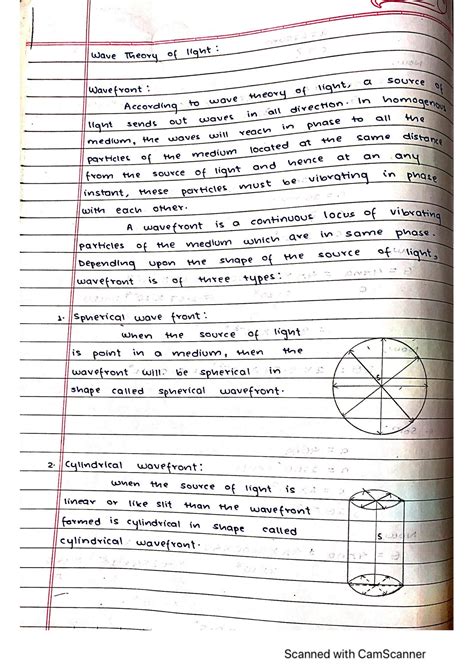 Wave Theory of light :
Wavefront :
According to wave theory of light, a source of
light sends out waves in all direction. In homogenous
medium, the waves will reach in phase to all the
particles of the medium located at the same distance
from the source of light and hence at an any
instant, these particles must be vibrating in phase
with each other.
A wavefront is a continuous locus of vibrating
particles of the medium which are in same phase.
Depending upon the shape of the source of light,
wavefront is of three types :
1. Spherical wave front :
When the source of light
is point in a medium, then the
wavefront will be spherical in
shape called spherical wavefront.
S
2. Cylindrical wavefront :
When the source of light is
linear or like slit than the wavefront
formed is cylindrical in shape called
cylindrical wavefront.
S
Scanned with CamScanner